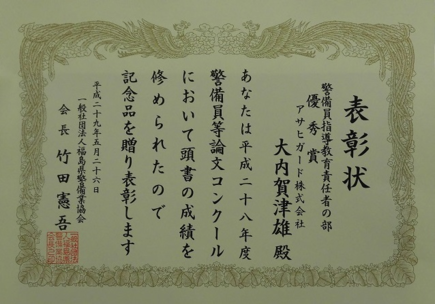 表彰状
警備員指導教育責任者の部
優秀賞
アサヒガード株式会社
大内賀津雄 殿
あなたは平成二十八年度
警備員等論文コンクール
において頭書の成績を
修められたので
記念品を贈り表彰します
平成二十九年五月二十六日
一般社団法人福島県警備業協会
会長 竹田憲吾